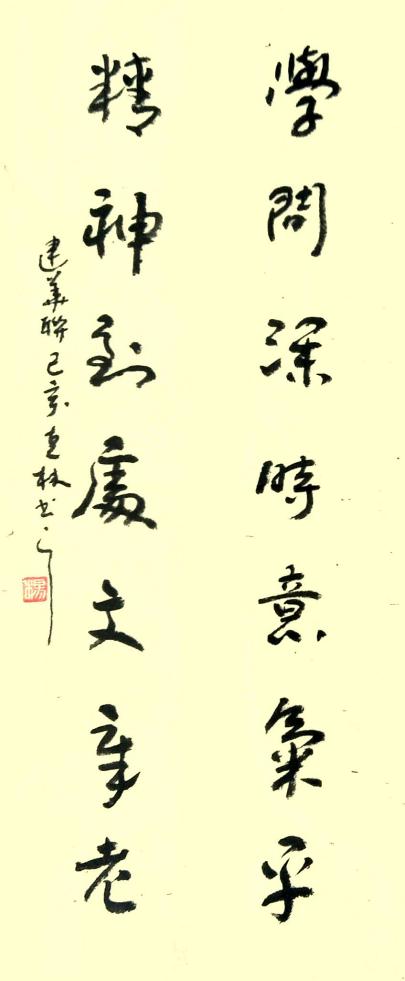 學問深時意氣平
精神到處文章老
建華聯己亥克林书